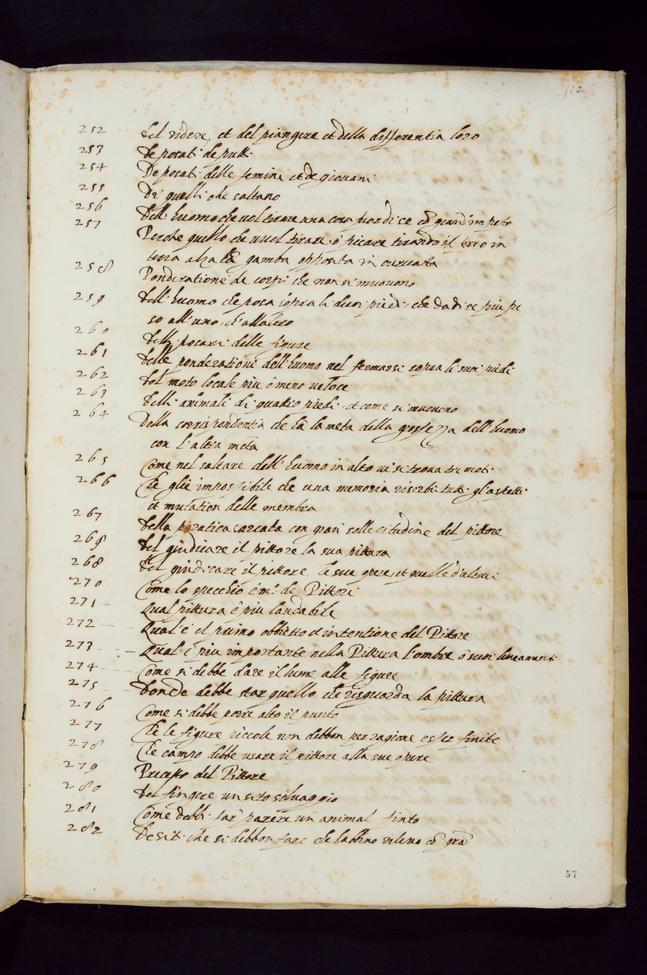 112
252 del ridere, et del piangere et della differentia loro
253 de posati de putti
254 De posati delle femine et de giovani
255 Di quelli che saltano
256 dell huomo che vol tirare una cosa fuor di se cō grand impeto
257 Perche quello che vuol tirare o ficare tirando il ferro in
terra alza la gamba opposita in curvata
258 Ponderatione de corpi che non si muovono
259 dell huomo che posa sopra li duoi piedi che da di se piu pe
so all uno, ch'all altro
260 delli posari delle figure
261 delle ponderatione dell huomo nel fermarsi sopra li suoi piedi
262 del moto locale piu o meno veloce
263 delli animali di quattro piedi et come si muoveno
264 Della corrispondentia che ha la meta della grossezza dell huomo
con l'altra meta
265 Come nel saltare dell huomo in alto vi si trova tre moti
266 Che glie impossibile che una memoria riserbi tutti gl aspetti
et mutation delle membra
267 della pratica cercata con gran sollecitudine del pittore
268 del giudicare il pittore la sua pittura
268 del giudicare il pittore le sue opere et quelle d'altrui
270 Come lo specchio è m.º de Pittori
271 Qual pittura è piu laudabile
272 Qual è il primo obbietto et intentione del Pittore
273 Qual è piu importante nella Pittura l'ombre o suoi lineamenti
274 Come si debbe dare il lume alle figure
275 donde debbe star quello che risguarda la pittura
276 Come si debbe porre alto il punto
277 Che le figure piccole non debbon per ragione esser finite
278 Che campo debbe usare il pittore alla sue opere
279 Precetto del Pittore
280 del fingere un sito selvaggio
281 Come debbi far parere un animal finto
282 De siti che si debbon fare che habbino rilevo cō gra
57